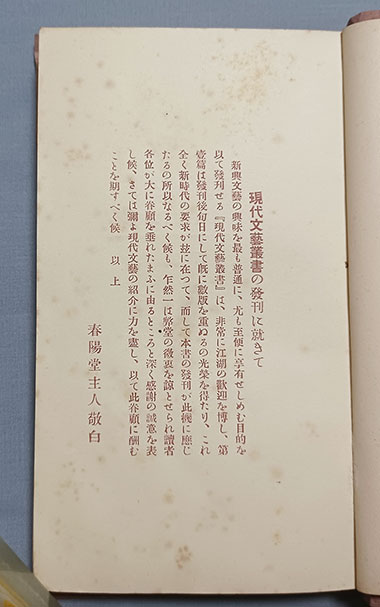 現代文藝叢書の發刊に就きて
新興文藝の興味を最も普通に、尤も至便に享有せしめむ目的を
以て發刊せる『現代文藝叢書』は、非常に江湖の歡迎を博し、第
壹篇は發刊後旬日にして既に數版を重ぬるの光榮を得たり、これ
全く新時代の要求が玆に在つて、而して本書の發刊が此機に應じ
たるの所以なるべく候も、乍然一は弊堂の微衷を諒とせられ讀者
各位が大に眷顧を垂れたまふに由るところと深く感謝の誠意を表
し候、さては彌よ現代文藝の紹介に力を盡し、以て此眷顧に酬む
ことを期すべく候　以上
春陽堂主人敬白